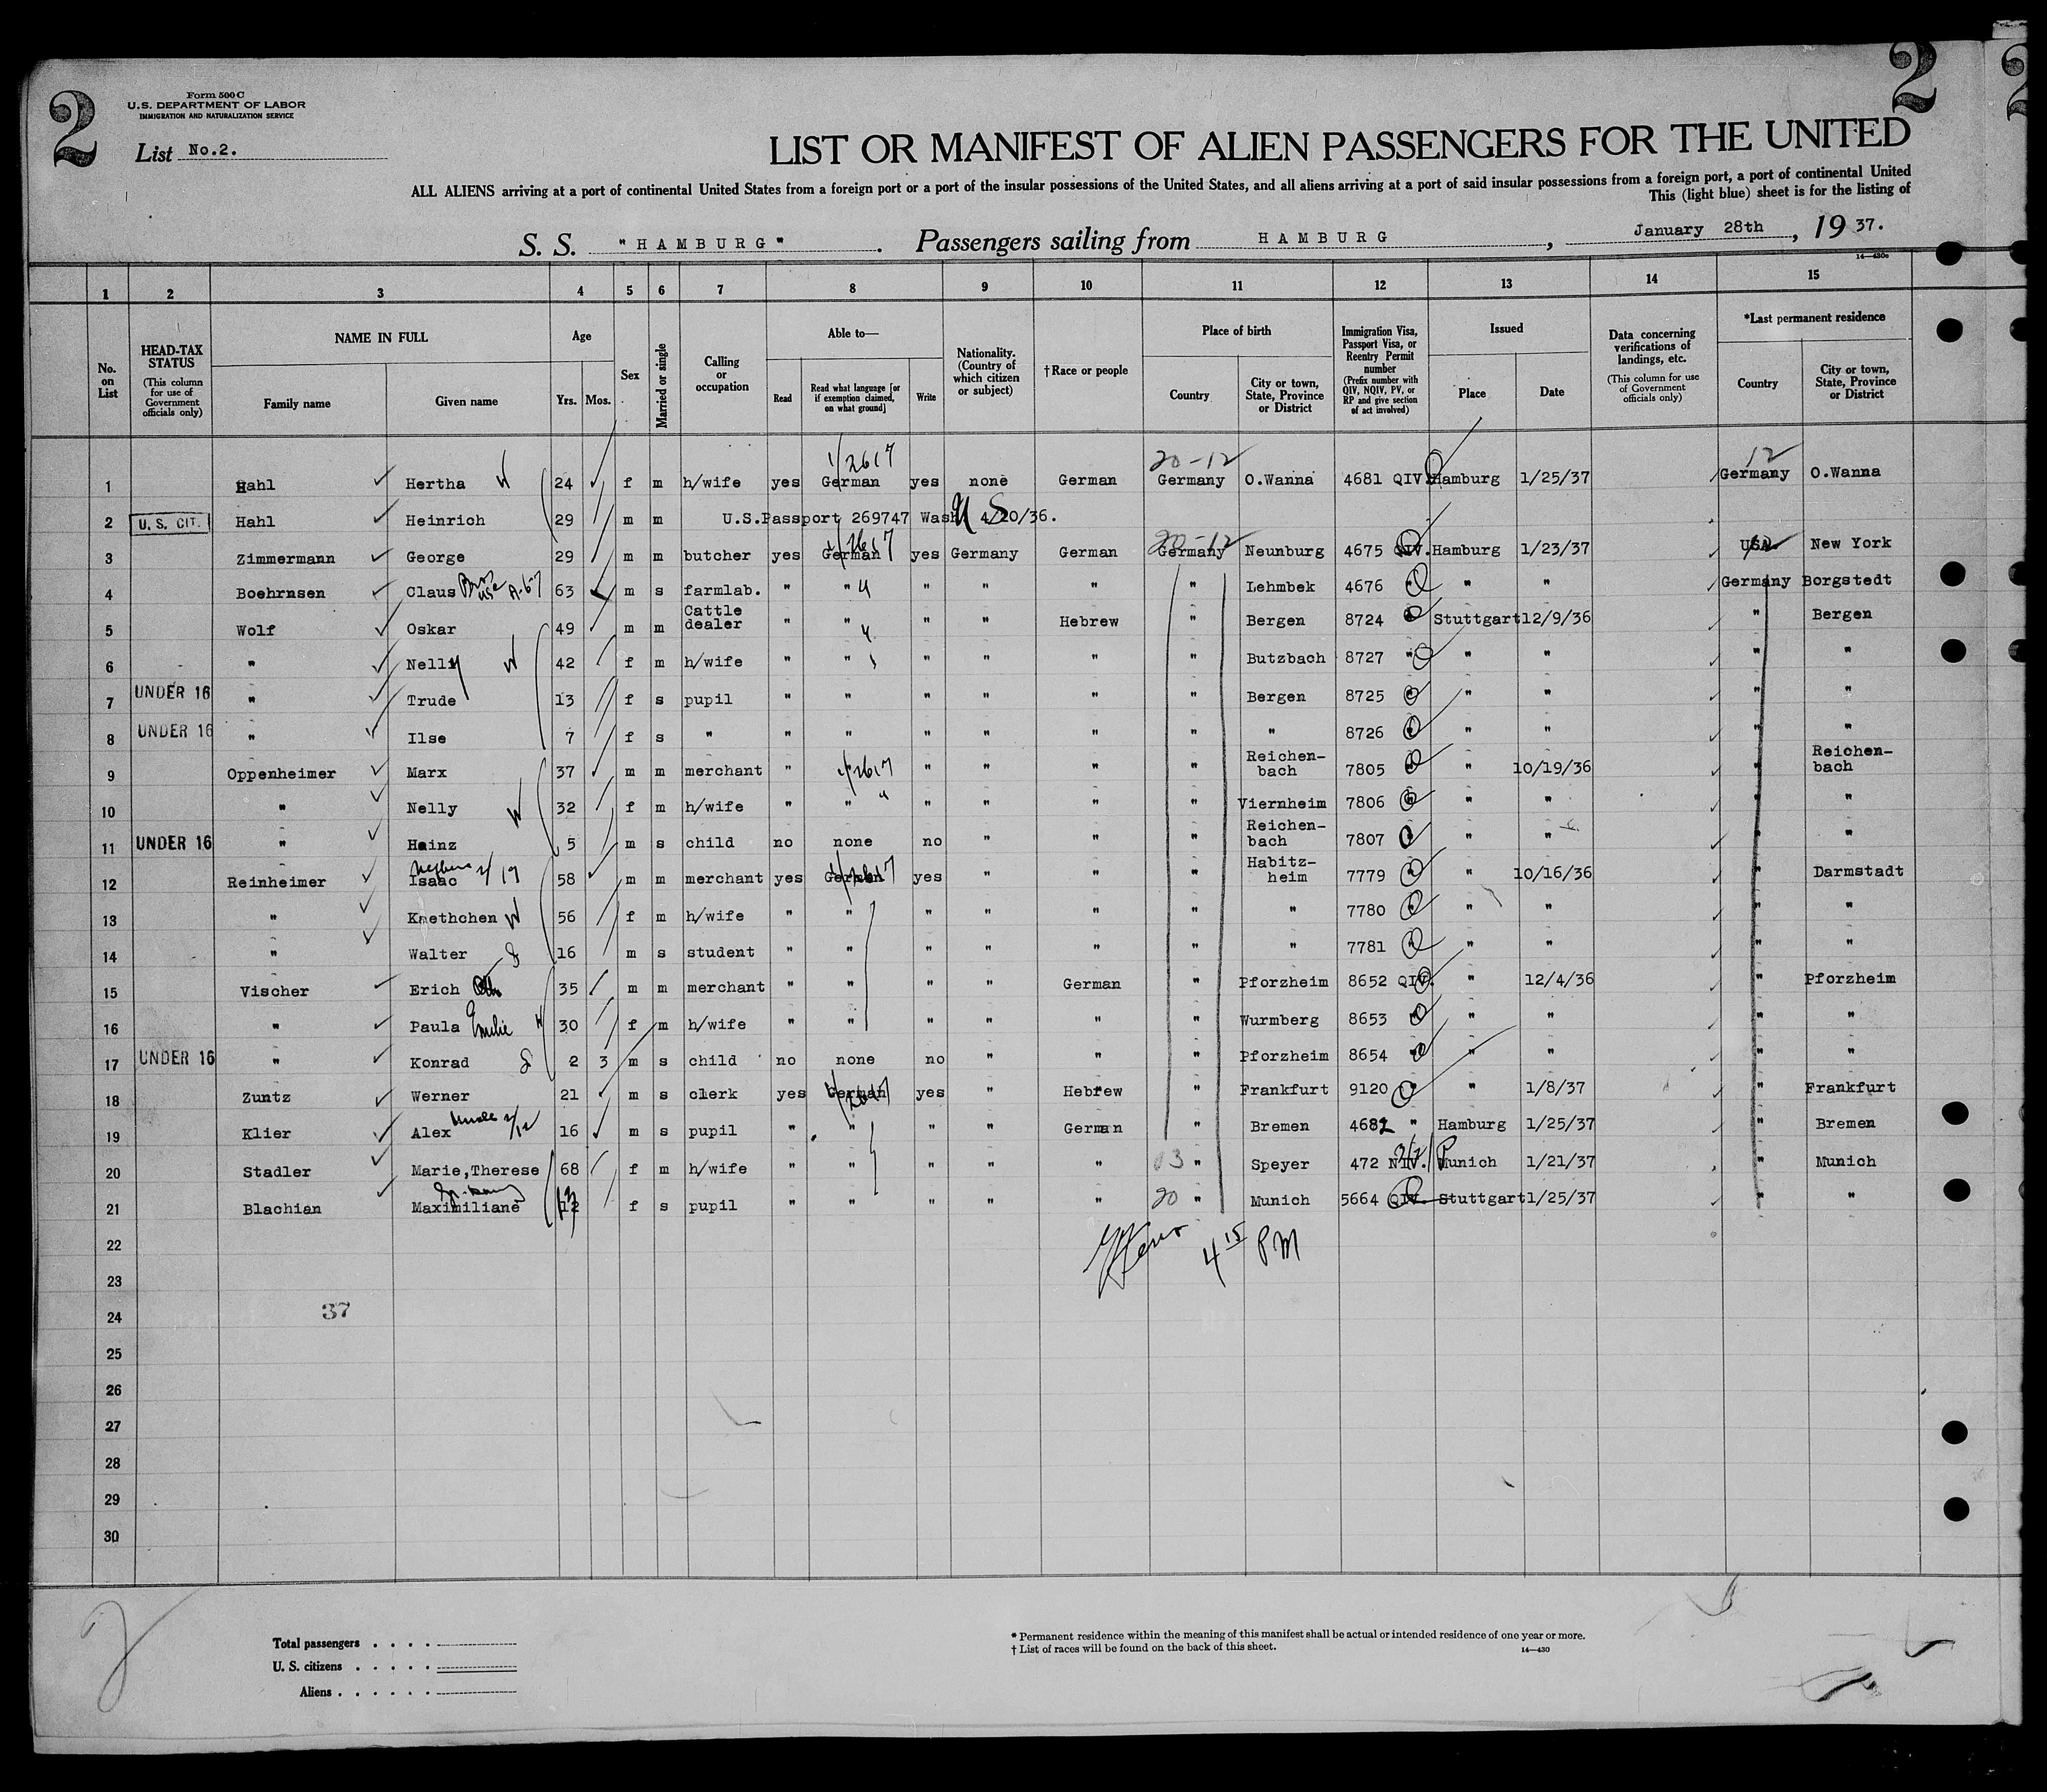 2
2
2
Form 500 C
U.S. DEPARTMENT OF LABOR
IMMIGRATION AND NATURALIZATION SERVICE
List No.2.
LIST OR MANIFEST OF ALIEN PASSENGERS FOR THE UNITED
ALL ALIENS arriving at a port of continental United States from a foreign port or a port of the insular possessions of the United States, and all aliens arriving at a port of said insular possessions from a foreign port, a port of continental United
This (light blue) sheet is for the listing of
S. S. "HAMBURG". Passengers sailing from HAMBURG, January 28th, 1937.
14—430c
1 2 3 4 5 6 7 8 9 10 11 12 13 14 15
No. on List
HEAD-TAX STATUS (This column for use of Government officials only)
NAME IN FULL
Family name Given name
Age
Yrs. Mos.
Sex
Married or single
Calling or occupation
Able to—
Read Read what language [or if exemption claimed, on what ground] Write
Nationality. (Country of which citizen or subject)
† Race or people
Place of birth
Country City or town, State, Province or District
Immigration Visa, Passport Visa, or Reentry Permit number (Prefix number with QIV, NQIV, PV, or RP and give section of act involved)
Issued
Place Date
Data concerning verifications of landings, etc. (This column for use of Government officials only)
*Last permanent residence
Country City or town, State, Province or District
20-12 12
1 Hahl Hertha W 24 f m h/wife yes German yes none German Germany O.Wanna 4681 QIV. Hamburg 1/25/37 Germany O.Wanna
2 U. S. CIT. Hahl Heinrich 29 m m U.S.Passport 269747 Wash. 4/20/36. U S
3 Zimmermann George 29 m m butcher yes German yes Germany German 20-12 Germany Neunburg 4675 QIV. Hamburg 1/23/37 USA. New York
4 Boehrnsen Claus 63 m s farmlab. " " " " " " Lehmbek 4676 " " " Germany Borgstedt
5 Wolf Oskar 49 m m Cattle dealer " " " " Hebrew " Bergen 8724 " Stuttgart 12/9/36 " Bergen
6 " Nelly W 42 f m h/wife " " " " " " Butzbach 8727 " " " " "
7 UNDER 16 " Trude 13 f s pupil " " " " " " Bergen 8725 " " " " "
8 UNDER 16 " Ilse 7 f s " " " " " " " " 8726 " " " " "
9 Oppenheimer Marx 37 m m merchant " " " " " " Reichen-bach 7805 " " 10/19/36 " Reichen-bach
10 " Nelly W 32 f m h/wife " " " " " " Viernheim 7806 " " " " "
11 UNDER 16 " Heinz 5 m s child no none no " " " Reichen-bach 7807 " " " " "
12 Reinheimer Isaac 58 m m merchant yes German yes " " " Habitz-heim 7779 " " 10/16/36 " Darmstadt
13 " Kaethchen W 56 f m h/wife " " " " " " " 7780 " " " " "
14 " Walter 16 m s student " " " " " " " 7781 " " " " "
15 Vischer Erich 35 m m merchant " " " " German " Pforzheim 8652 QIV. " 12/4/36 " Pforzheim
16 " Paula Emilie W 30 f m h/wife " " " " " " Wurmberg 8653 " " " " "
17 UNDER 16 " Konrad 2 3 m s child no none no " " " Pforzheim 8654 " " " " "
18 Zuntz Werner 21 m s clerk yes German yes " Hebrew " Frankfurt 9120 " " 1/8/37 " Frankfurt
19 Klier Alex 16 m s pupil " " " " German " Bremen 4682 " Hamburg 1/25/37 " Bremen
20 Stadler Marie,Therese 68 f m h/wife " " " " " " Speyer 472 NIV. Munich 1/21/37 " Munich
21 Blachian Maximiliane 12 f s pupil " " " " " 20 " Munich 5664 QIV. Stuttgart 1/25/37 " "
22
4 15 PM
23
24 37
25
26
27
28
29
30
Total passengers
U. S. citizens
Aliens
* Permanent residence within the meaning of this manifest shall be actual or intended residence of one year or more.
† List of races will be found on the back of this sheet. 14—430